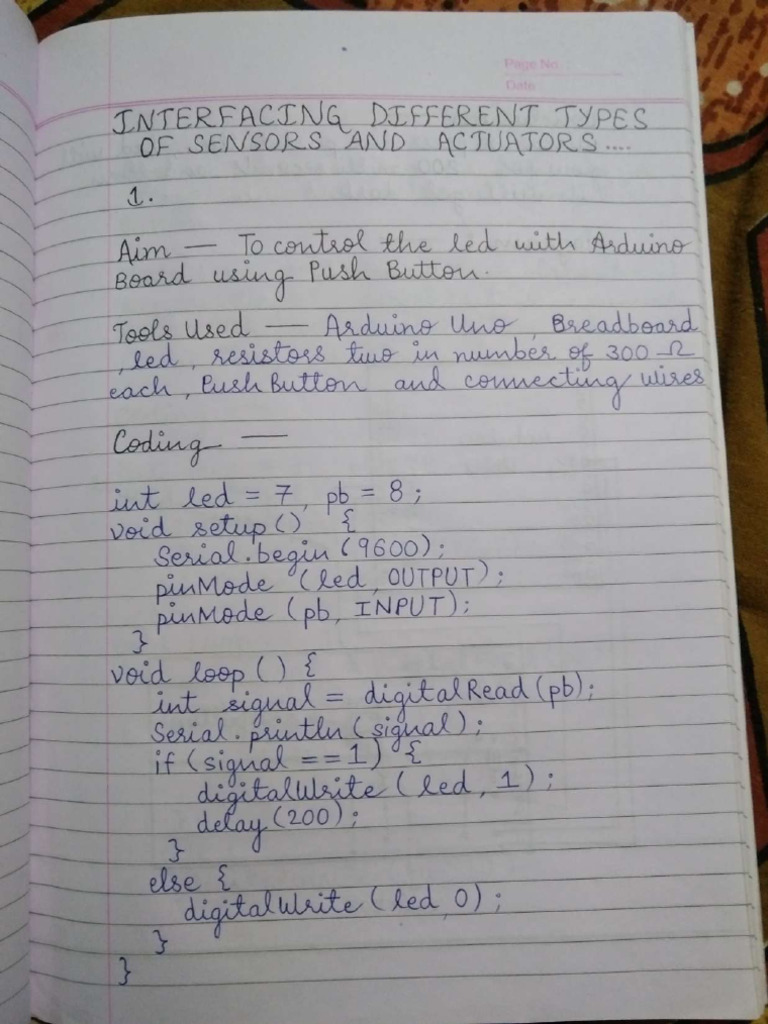 Page No.:
Date
INTERFACING DIFFERENT TYPES
OF SENSORS AND ACTUATORS....
1.
Aim — To control the led with Arduino
Board using Push Button.
Tools Used — Arduino Uno, Breadboard
, led, resistors two in number of 300 Ω
each, Push Button and connecting wires
Coding —
int led = 7, pb = 8;
void setup() {
Serial.begin(9600);
pinMode (led, OUTPUT);
pinMode (pb, INPUT);
}
void loop() {
int signal = digitalRead(pb);
Serial.println(signal);
if (signal == 1) {
digitalWrite (led, 1);
delay(200);
}
else {
digitalWrite (led, 0);
}
}